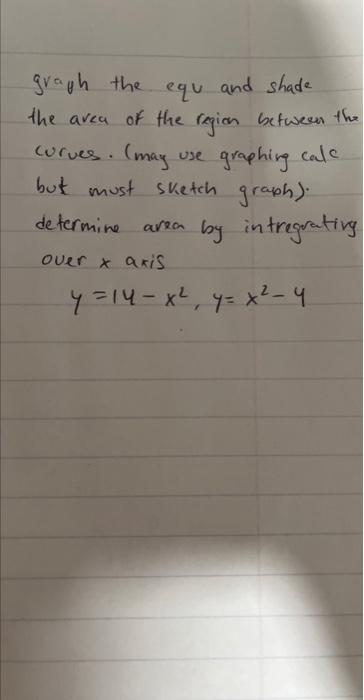 graph the equ and shade
the area of the region between the
curves. (may use graphing calc
but must sketch graph).
determine area by intregrating
over x axis
y = 14 - x², y = x² - 4